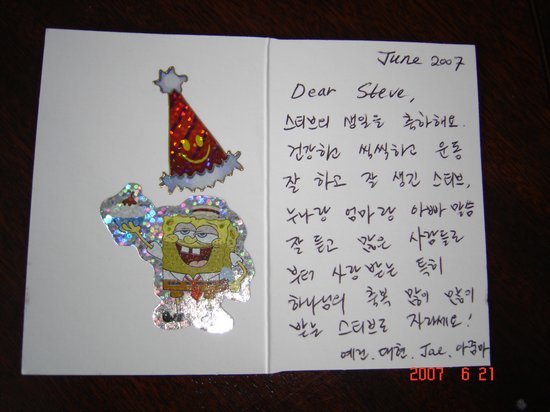 June 2007
Dear Steve,
스티브의 생일을 축하해요.
건강하고 씩씩하고 운동
잘 하고 잘 생긴 스티브,
누나랑 엄마랑 아빠 말씀
잘 듣고 많은 사람들로
부터 사랑 받는 특히
하나님의 축복 많이 많이
받는 스티브로 자라세요!
예건. 대현. Jae. 아줌마
2007 6 21